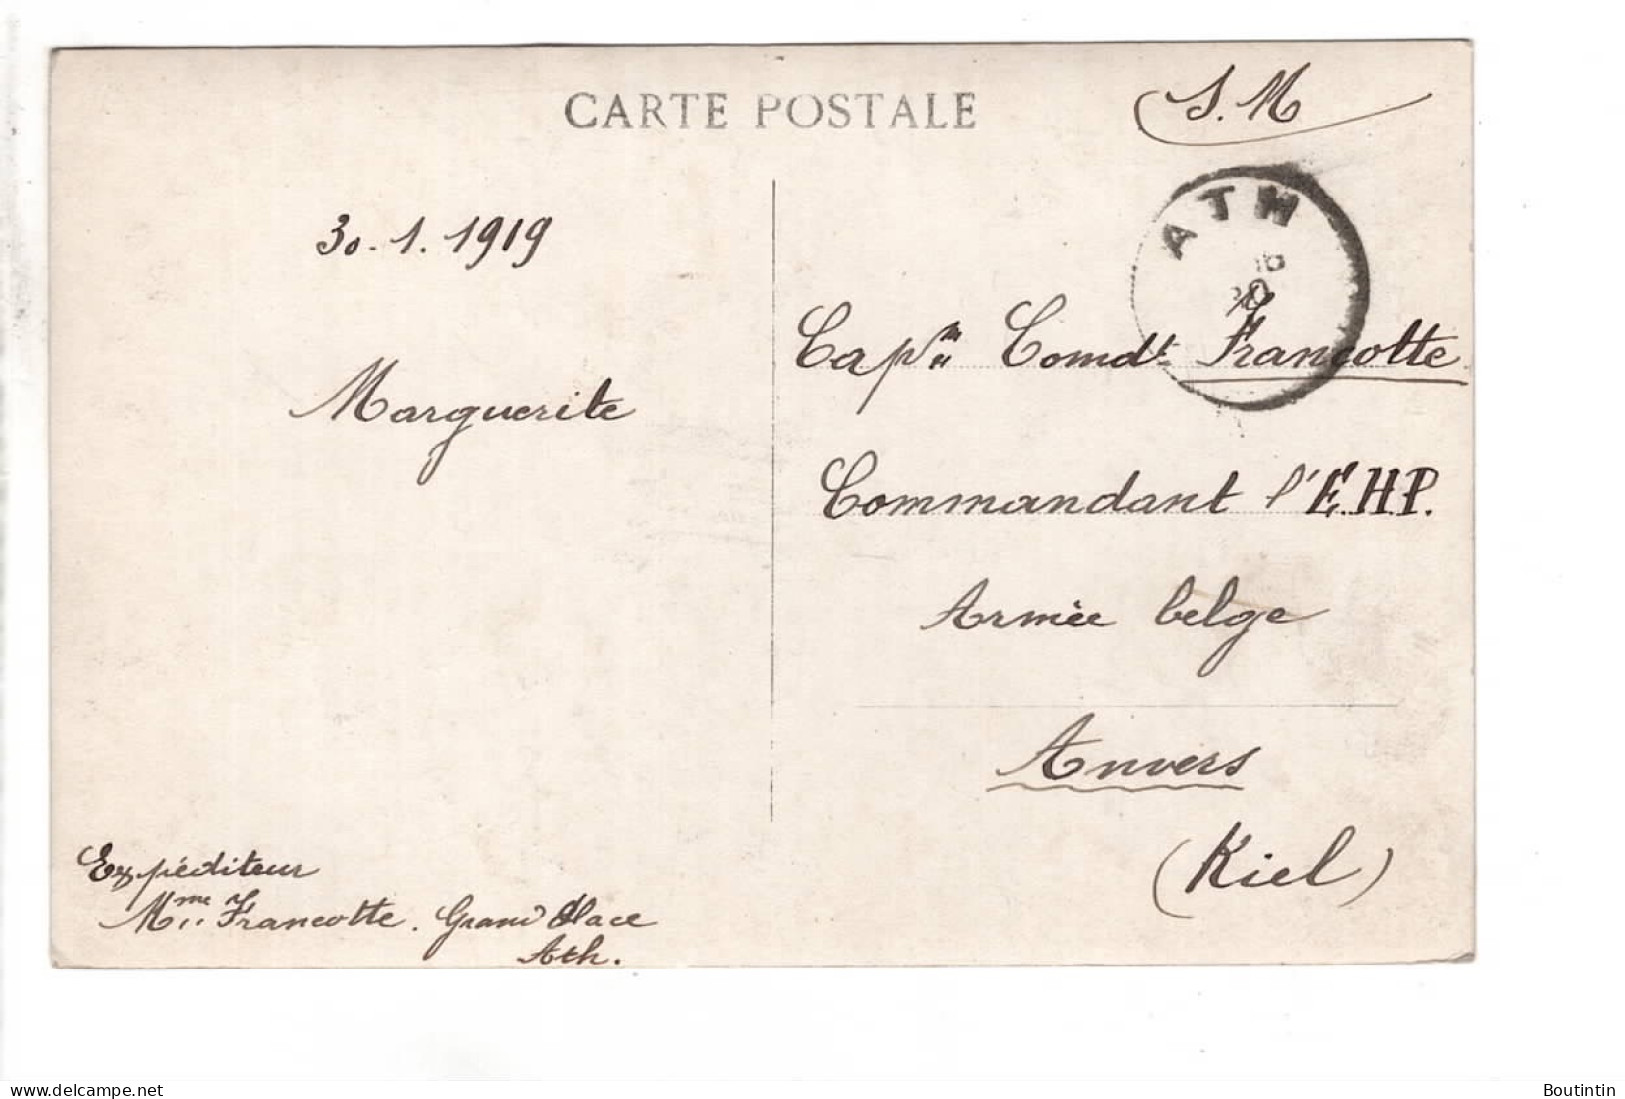 CARTE POSTALE
S.M
ATH
30.1.1919
Capne Comdt Francotte
Marguerite
Commandant l'E.H.P.
Armée belge
Anvers
(Kiel)
Expéditeur
Mme Francotte. Grand Place
Ath.
www.delcampe.net
Boutintin